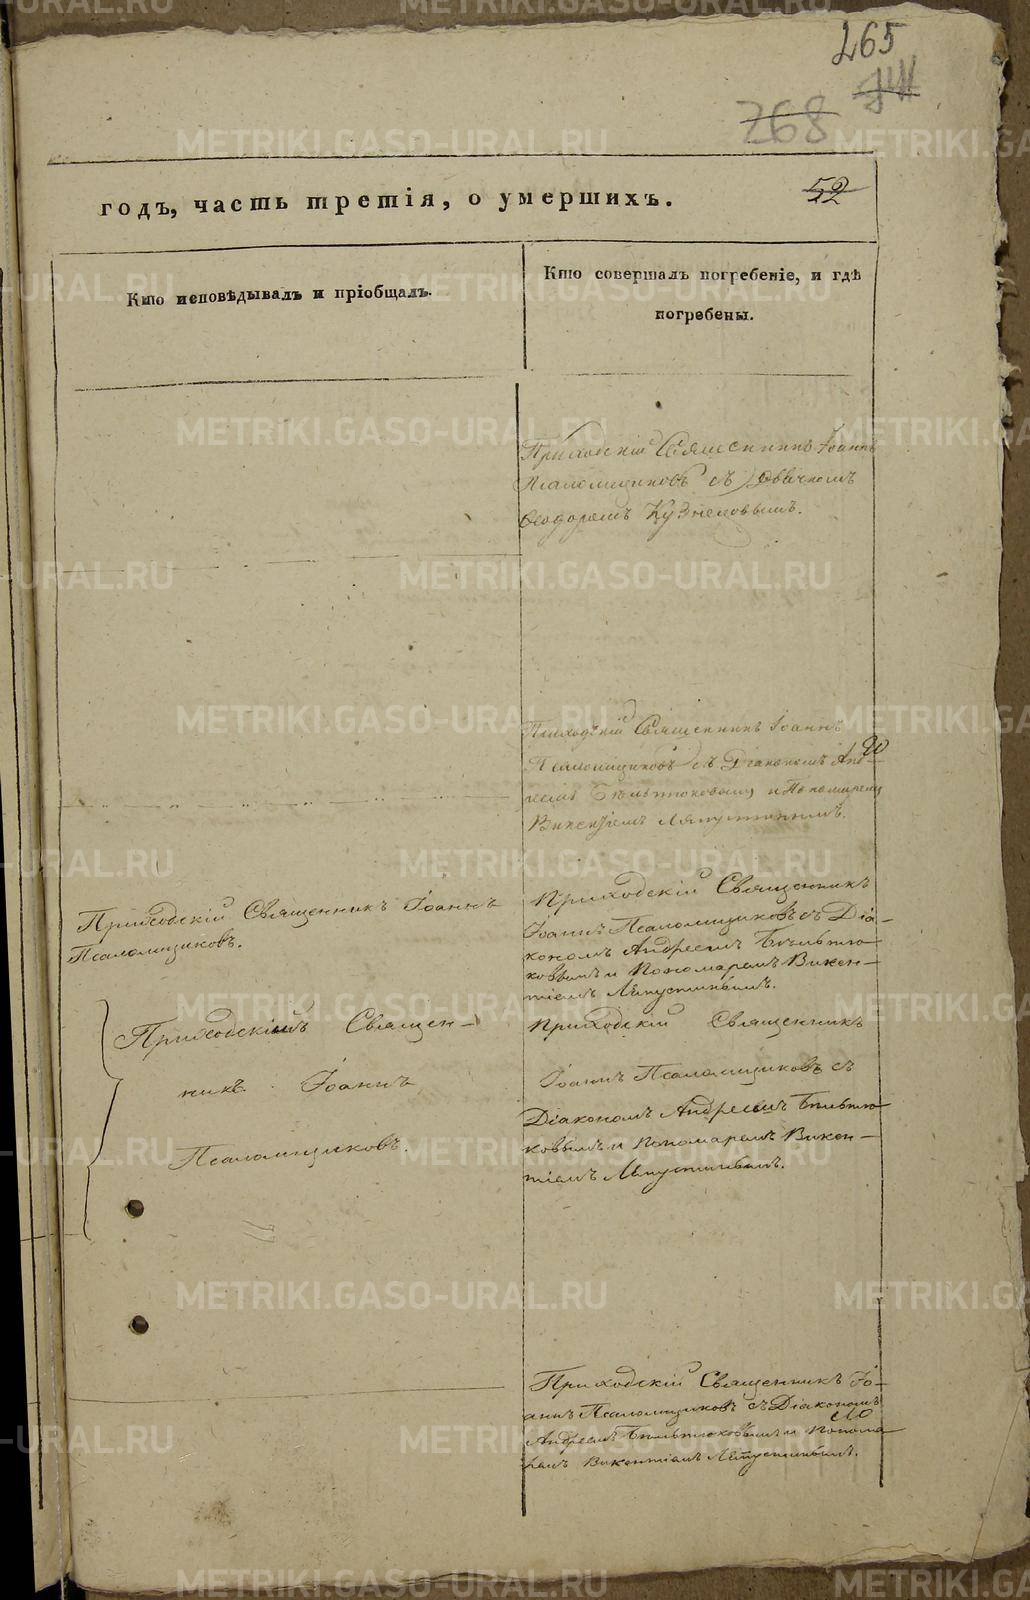 265
268
52
годъ, часть третія, о умершихъ.
Кто исповѣдывалъ и пріобщалъ.
Кто совершалъ погребеніе, и гдѣ
погребены.
Приходскій Священникъ Іоаннъ
Псаломщиковъ съ Дьячкомъ
Ѳеодоромъ Кузнецовымъ.
Приходскій Священникъ Іоаннъ
Псаломщиковъ съ Діакономъ Анд-
реемъ и Пономаремъ
Викентіемъ Ляпустинымъ.
Приходскій Священникъ Іоаннъ
Псаломщиковъ.
Приходскій Священникъ
Іоаннъ Псаломщиковъ съ Діа-
кономъ Андреемъ Бѣлътю-
ковымъ и Пономаремъ Викен-
тіемъ Ляпустинымъ.
Приходскій Священ-
никъ Іоаннъ
Псаломщиковъ.
Приходскій Священникъ
Іоаннъ Псаломщиковъ съ
Діакономъ Андреемъ Бѣлътю-
ковымъ и Пономаремъ Викен-
тіемъ Ляпустинымъ.
Приходскій Священникъ Іо-
аннъ Псаломщиковъ съ Діакономъ
Андреемъ Бѣлътюковымъ и Понома-
ремъ Викентіемъ Ляпустинымъ.
METRIKI.GASO-URAL.RU